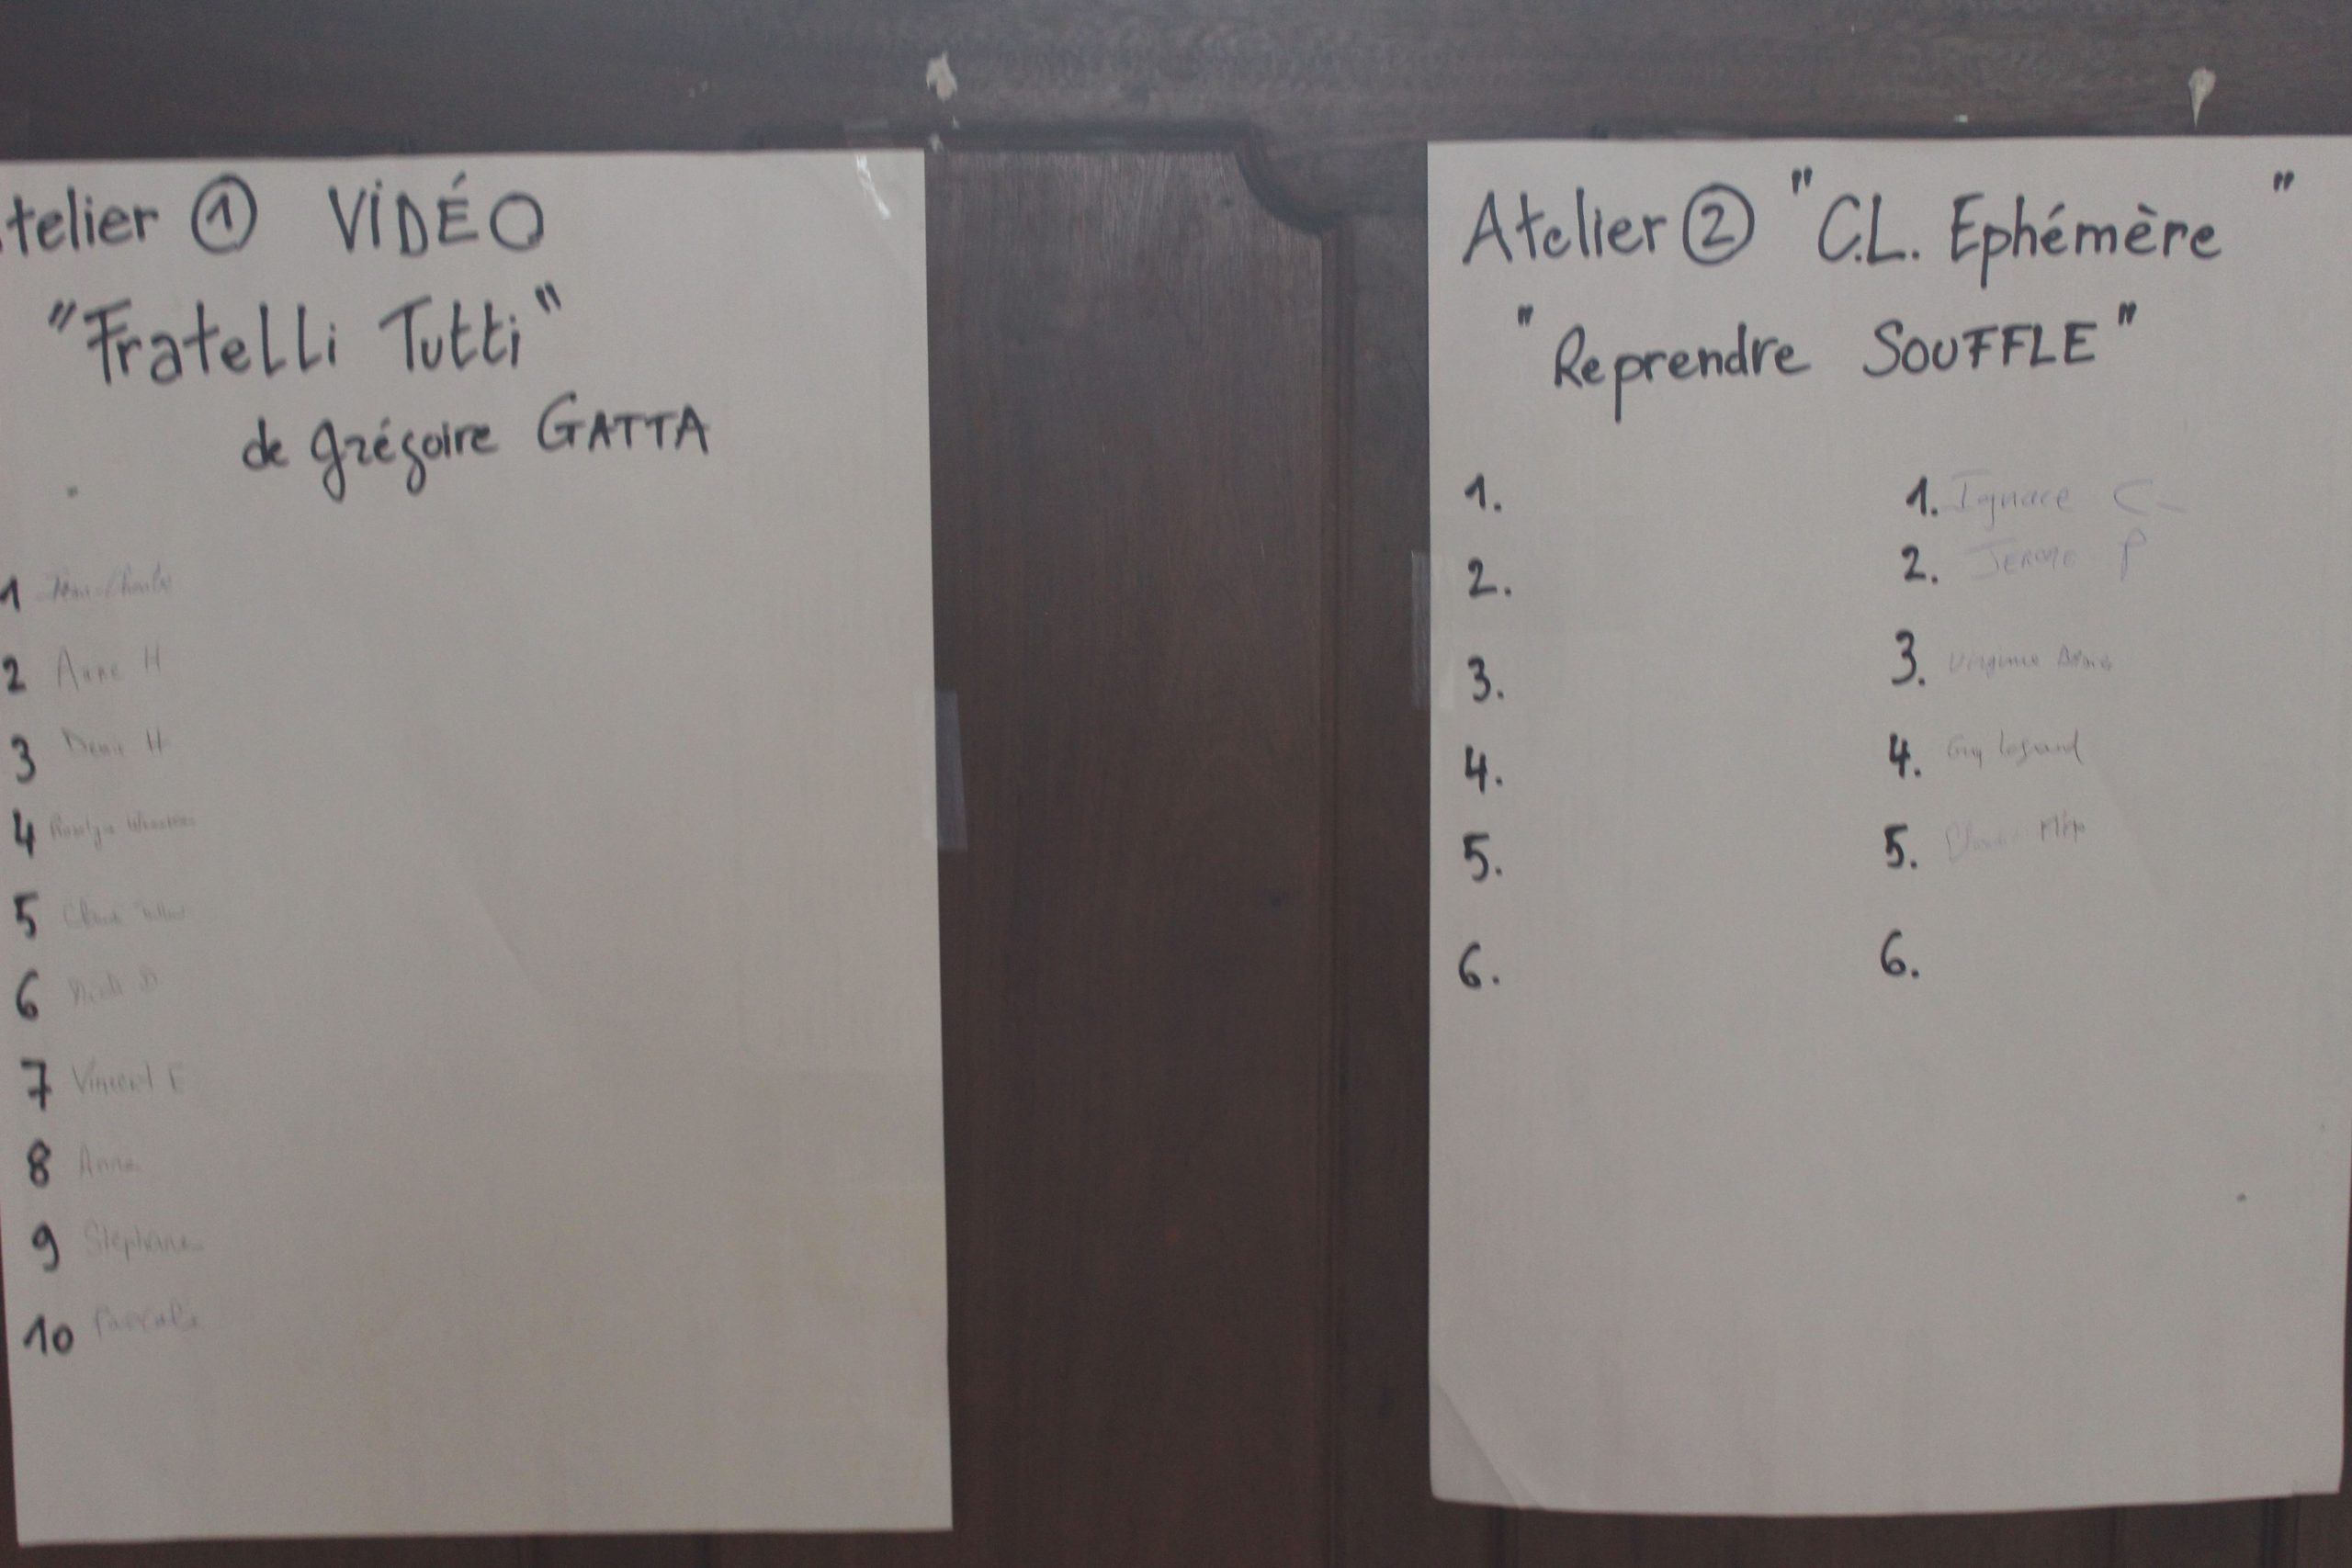 telier ① VIDÉO
"Fratelli Tutti"
de Grégoire GATTA
1
2 Anne H
3 Denis H
4
5
6
7 Vincent E
8 Anne
9 Stéphane
10 Pascale
Atelier ② "C.L. Ephémère "
"Reprendre SOUFFLE"
1.
2.
3.
4.
5.
6.
1. Ignace C.
2. JEROME P
3. Virginie
4. Guy Legrand
5.
6.